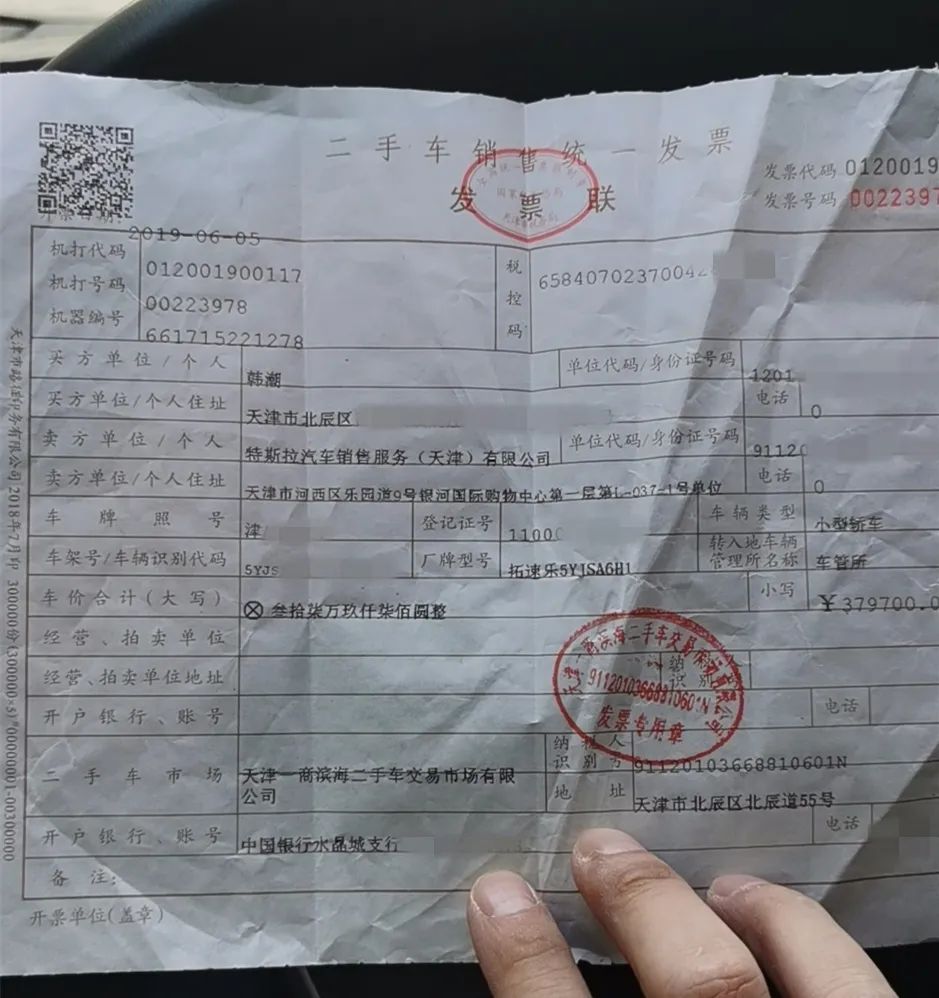 二手车销售统一发票
发票联
发票代码 0120019
发票号码 0022397
开票日期: 2019-06-05
机打代码 012001900117
机打号码 00223978
机器编号 661715221278
税控码 6584070237004
买方单位/个人 韩潮 单位代码/身份证号码 1201
买方单位/个人住址 天津市北辰区 电话 0
卖方单位/个人 特斯拉汽车销售服务（天津）有限公司 单位代码/身份证号码 9112
卖方单位/个人住址 天津市河西区乐园道9号银河国际购物中心第一层第L-037-1号单位 电话 0
车牌照号 津 登记证号 1100 车辆类型 小型轿车
车架号/车辆识别代码 5YJS 厂牌型号 拓速乐5YJSA6H1 转入地车辆管理所名称 车管所
车价合计(大写) ⊗ 叁拾柒万玖仟柒佰圆整 小写 ￥379700.0
经营、拍卖单位
经营、拍卖单位地址 纳 识别
开户银行、账号 电话
二手车市场 天津一商滨海二手车交易市场有限公司 纳税人识别号 91120103668810601N
地址 天津市北辰区北辰道55号
开户银行、账号 中国银行水晶城支行 电话
备注:
开票单位(盖章)
91120103668810601N
发票专用章
2018年7月印 300000份(300000×5)